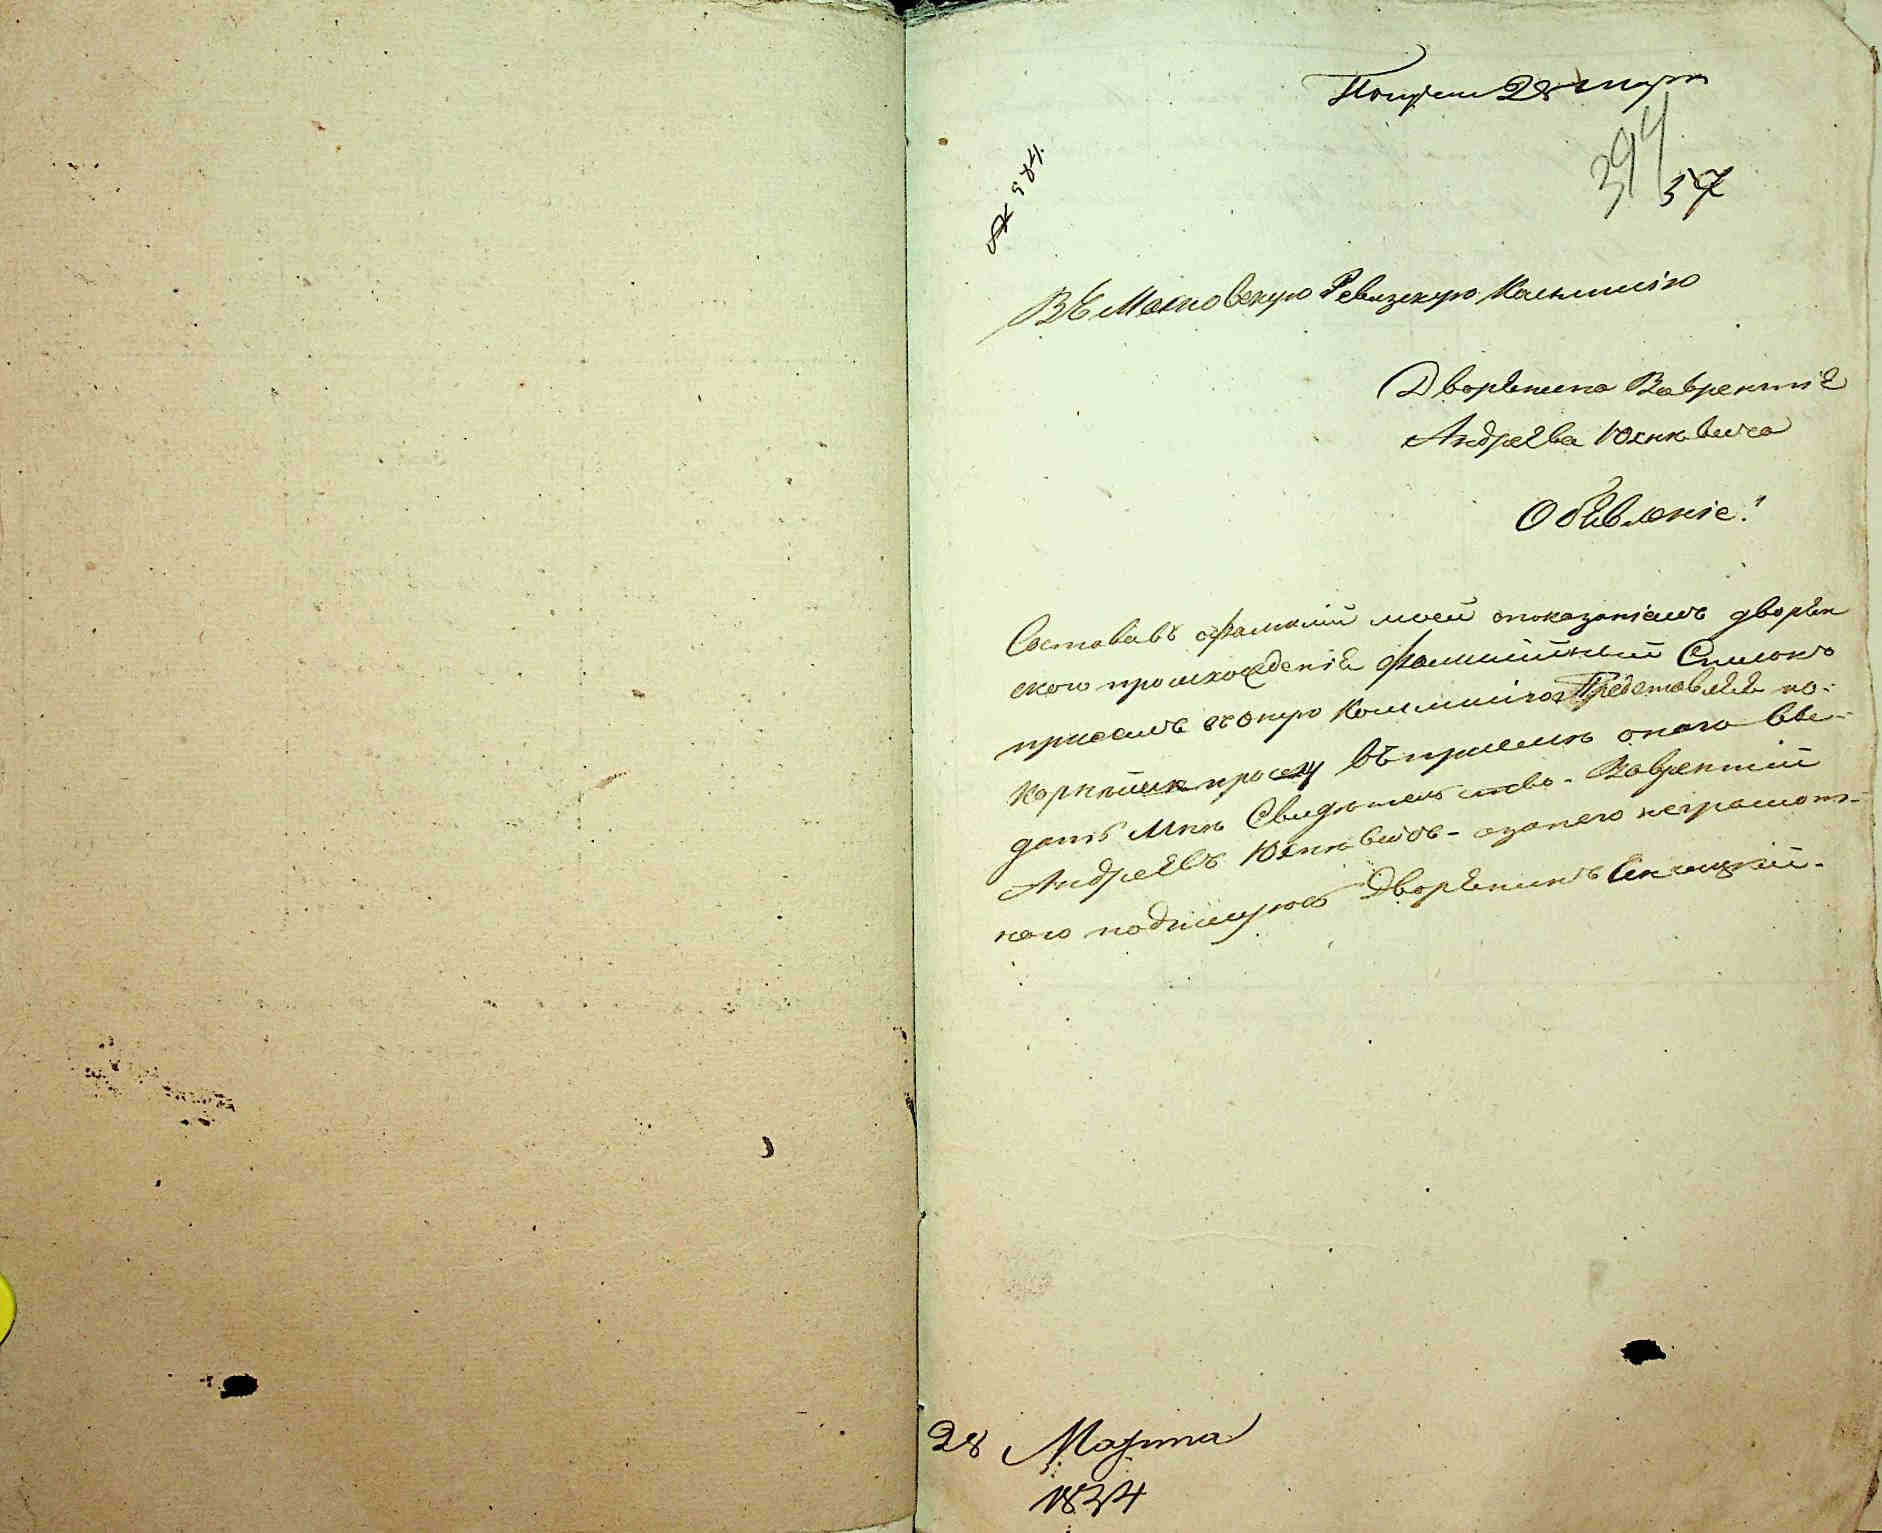 Получено 28 марта
394
57
№ 584.
Въ Московскую Ревизскую Коммисію
Дворѣнина Лаврентіѣ
Андреева Юснквича
Объѣвленіе!
Составивъ фамиліи моей показаніемъ дворѣн
ского происхожденіѣ фамилійный Списокъ
при семъ въ оную Коммисію Представлѣѣ по-
корнѣйше прошу въ приемѣ оного вы-
дать мнѣ Свидѣтельство - Лаврентій
Андреевъ - а за него неграмот-
ного подпишусѣ Дворѣнинъ
28 Марта
1834